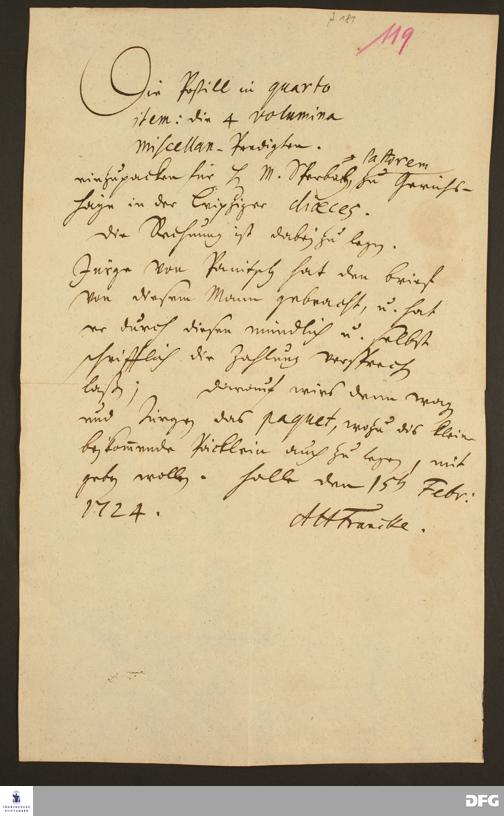 A 181
119
Die Postill in quarto
item: die 4 volumina
Miscellan-Predigten.
einzupacken für H. M. Pastorem zu Gerichs-
hayn in der Leipziger dioeces.
Die Rechnung ist dabey zu legen.
Jürge von Panitsch hat den brief
von diesem Mann gebracht, u. hat
er durch diesen mündlich u. selbst
schrifftlich die Zahlung versprech
laßen; darauf wirs denn wagen
und Jürgen das paquet, wozu dis klein
beykommende Päcklein auch zu legen, mit
geben wollen. Halle den 15ten Febr:
1724. AHFrancke.
FRANCKESCHE STIFTUNGEN
DFG